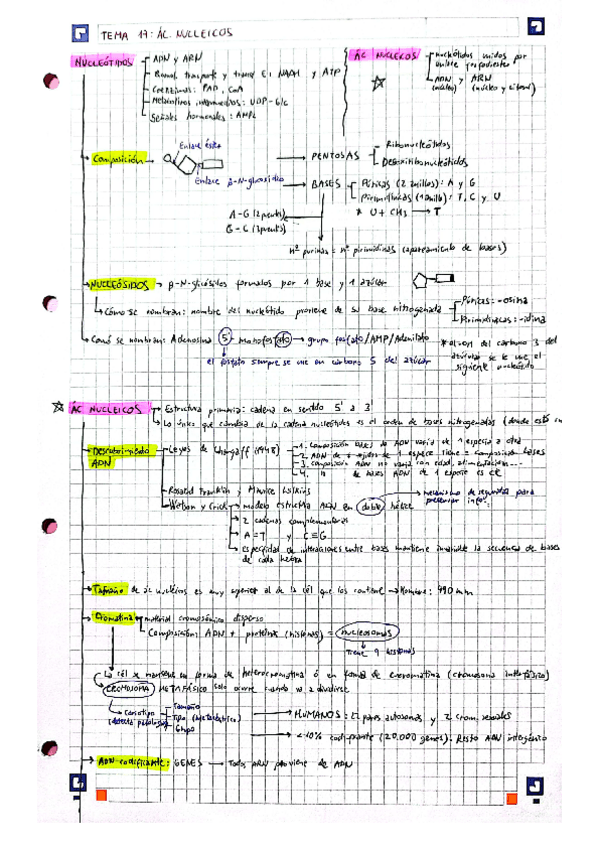 TEMA 17: ÁC. NUCLEICOS
NUCLEÓTIDOS
ADN y ARN
Biomol. transporte y transf E: NADH y ATP
Coenzimas: FAD, CoA
Metabolitos intermedios: UDP-Glc
Señales hormonales: AMPc
ÁC NUCLEICOS
nucleótidos unidos por
ADN y ARN
(núcleo) (núcleo y citosol)
Composición
Enlace éster
Enlace β-N-glucosídico
PENTOSAS
Ribonucleótidos
Desoxirribonucleótidos
BASES
Púricas (2 anillos): A y G
Pirimidínicas (1 anillo): T, C y U
* U + CH3 → T
nº purinas = nº pirimidinas (apareamiento de bases)
NUCLEÓSIDOS → β-N-glucósidos formados por 1 base y 1 azúcar
Cómo se nombran: nombre del nucleótido proviene de su base nitrogenada
Púricas: -osina
Pirimidínicas: -idina
Cómo se nombran: Adenosina 5' monofosfato → grupo fosfato/AMP/Adenilato
el fosfato siempre se une en carbono 5 del azúcar
* al von del carbono 3 del
azúcar se le une el
siguiente nucleótido
ÁC NUCLEICOS
Estructura primaria: cadena en sentido 5' a 3'
Lo único que cambia de la cadena nucleótidos es el orden de bases nitrogenadas
Descubrimiento
ADN
Leyes de Chargaff (1948)
1. Composición bases de ADN varía de 1 especie a otra
2. ADN de ≠ tejidos de 1 especie tiene = composición bases
3. composición ADN no varía con edad, alimentación...
4. de bases ADN de 1 especie es cte
Rosalind Franklin y Maurice Wilkins
Watson y Crick → modelo estructura ADN en doble hélice
mecanismo de seguridad para
preservar infor.
2 cadenas complementarias
A = T y C ≡ G
especificidad de interacciones entre bases mantiene invariable la secuencia de bases
de cada hebra
Tamaño de ác nucleicos es muy superior al de la cél que los contiene → Hombre: 990 mm
Cromatina
material cromosómico disperso
Composición: ADN + proteínas (histonas) = nucleosomas
tiene 9 histonas
La cél se mantiene en forma de heterocromatina ó en forma de eucromatina (cromosoma interfásico)
CROMOSOMA METAFÁSICO solo ocurre cuando va a dividirse
Cariotipo
(detecta patologías)
Tamaño
Tipo (metacéntrico)
Grupo
HUMANOS: 22 pares autosomas y 2 crom. sexuales
<10% codificante (20.000 genes). Resto ADN intergénico
ADN codificante: GENES → Todos ARN proviene de ADN